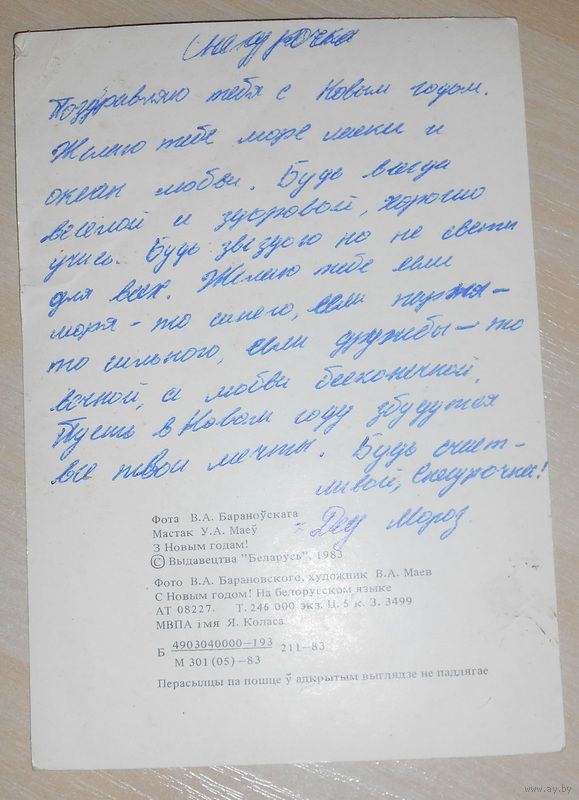 Снегурочка
Поздравляю тебя с Новым годом.
Желаю тебе море ласки и
океан любви. Будь всегда
веселой и здоровой, хорошо
учись. Будь звездою но не свети
для всех. Желаю тебе если
моря - то синего, если парня -
то сильного, если дружбы - то
вечной, а любви бесконечной.
Пусть в Новом году збудутся
все твои мечты. Будь счаст-
ливой, Снегурочка!
Дед Мороз.
Фота В.А. Бараноўскага
Мастак У.А. Маеў
З Новым годам!
© Выдавецтва "Беларусь", 1983
Фото В.А. Барановского, художник В.А. Маев
С Новым годом! На белорусском языке
АТ 08227. Т. 246 000 экз. Ц. 5 к. З. 3499
МВПА імя Я. Коласа
Б 4903040000-193 211-83
М 301 (05) -83
Перасылцы па пошце ў адкрытым выглядзе не падлягае
www.ay.by